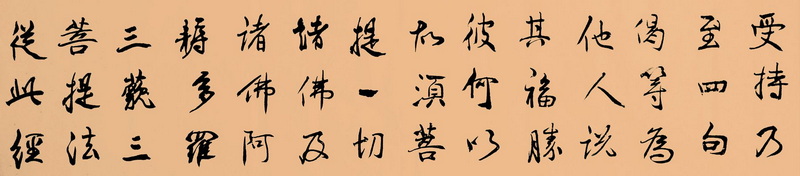 受持乃
至四句
偈等為
他人說
其福勝
彼何以
故須菩
提一切
諸佛及
諸佛阿
耨多羅
三藐三
菩提法
從此經